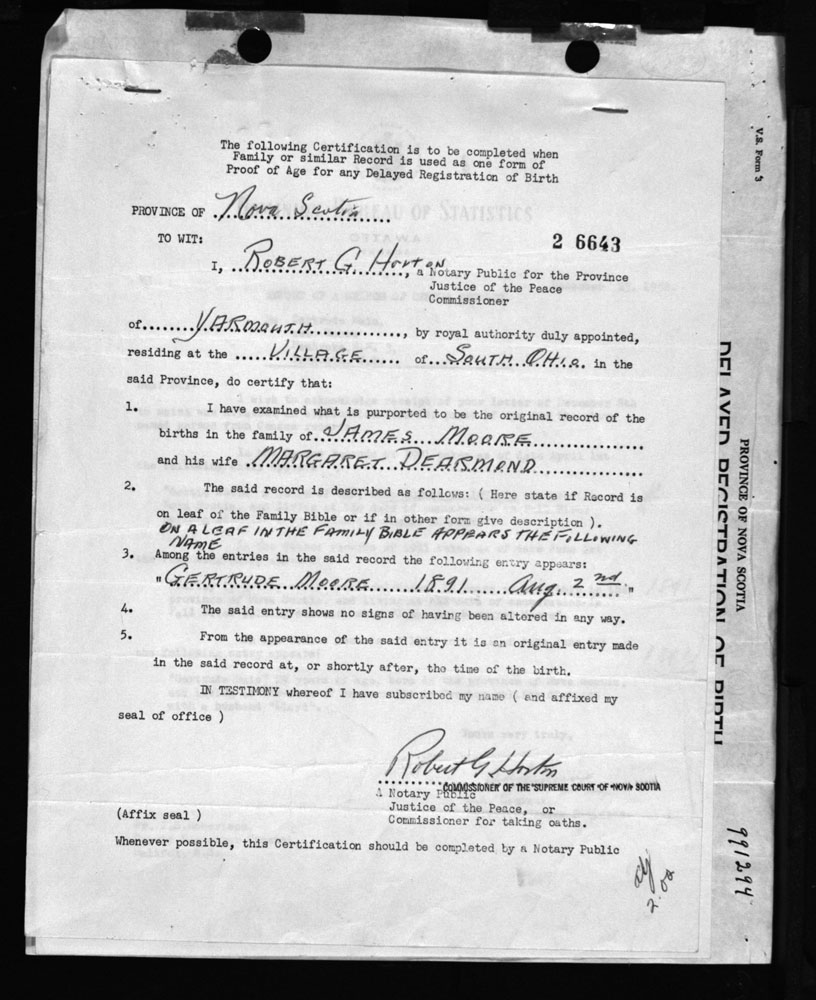 The following Certification is to be completed when
Family or similar Record is used as one form of
Proof of Age for any Delayed Registration of Birth
PROVINCE OF Nova Scotia
TO WIT:
2 6643
I, ROBERT G. HORTON, a Notary Public for the Province
Justice of the Peace
Commissioner
of YARMOUTH, by royal authority duly appointed,
residing at the VILLAGE of SOUTH OHIO. in the
said Province, do certify that:
1. I have examined what is purported to be the original record of the
births in the family of JAMES MOORE
and his wife MARGARET DEARMOND
2. The said record is described as follows: ( Here state if Record is
on leaf of the Family Bible or if in other form give description ).
ON A LEAF IN THE FAMILY BIBLE APPEARS THE FOLLOWING
NAME
3. Among the entries in the said record the following entry appears:
"GERTRUDE MOORE 1891 Aug. 2nd."
4. The said entry shows no signs of having been altered in any way.
5. From the appearance of the said entry it is an original entry made
in the said record at, or shortly after, the time of the birth.
IN TESTIMONY whereof I have subscribed my name ( and affixed my
seal of office )
Robert G Horton
COMMISSIONER OF THE SUPREME COURT OF NOVA SCOTIA
A Notary Public
Justice of the Peace, or
Commissioner for taking oaths.
(Affix seal )
Whenever possible, this Certification should be completed by a Notary Public
2.00
V.S. Form 3
PROVINCE OF NOVA SCOTIA
DELAYED REGISTRATION OF BIRTH
991294